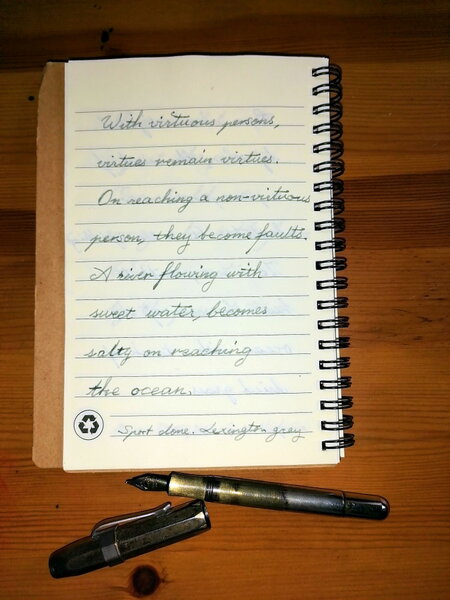 With virtuous persons,
virtues remain virtues.
On reaching a non-virtuous
person, they become faults.
A river flowing with
sweet water, becomes
salty on reaching
the ocean.
Sport clone. Lexington gray